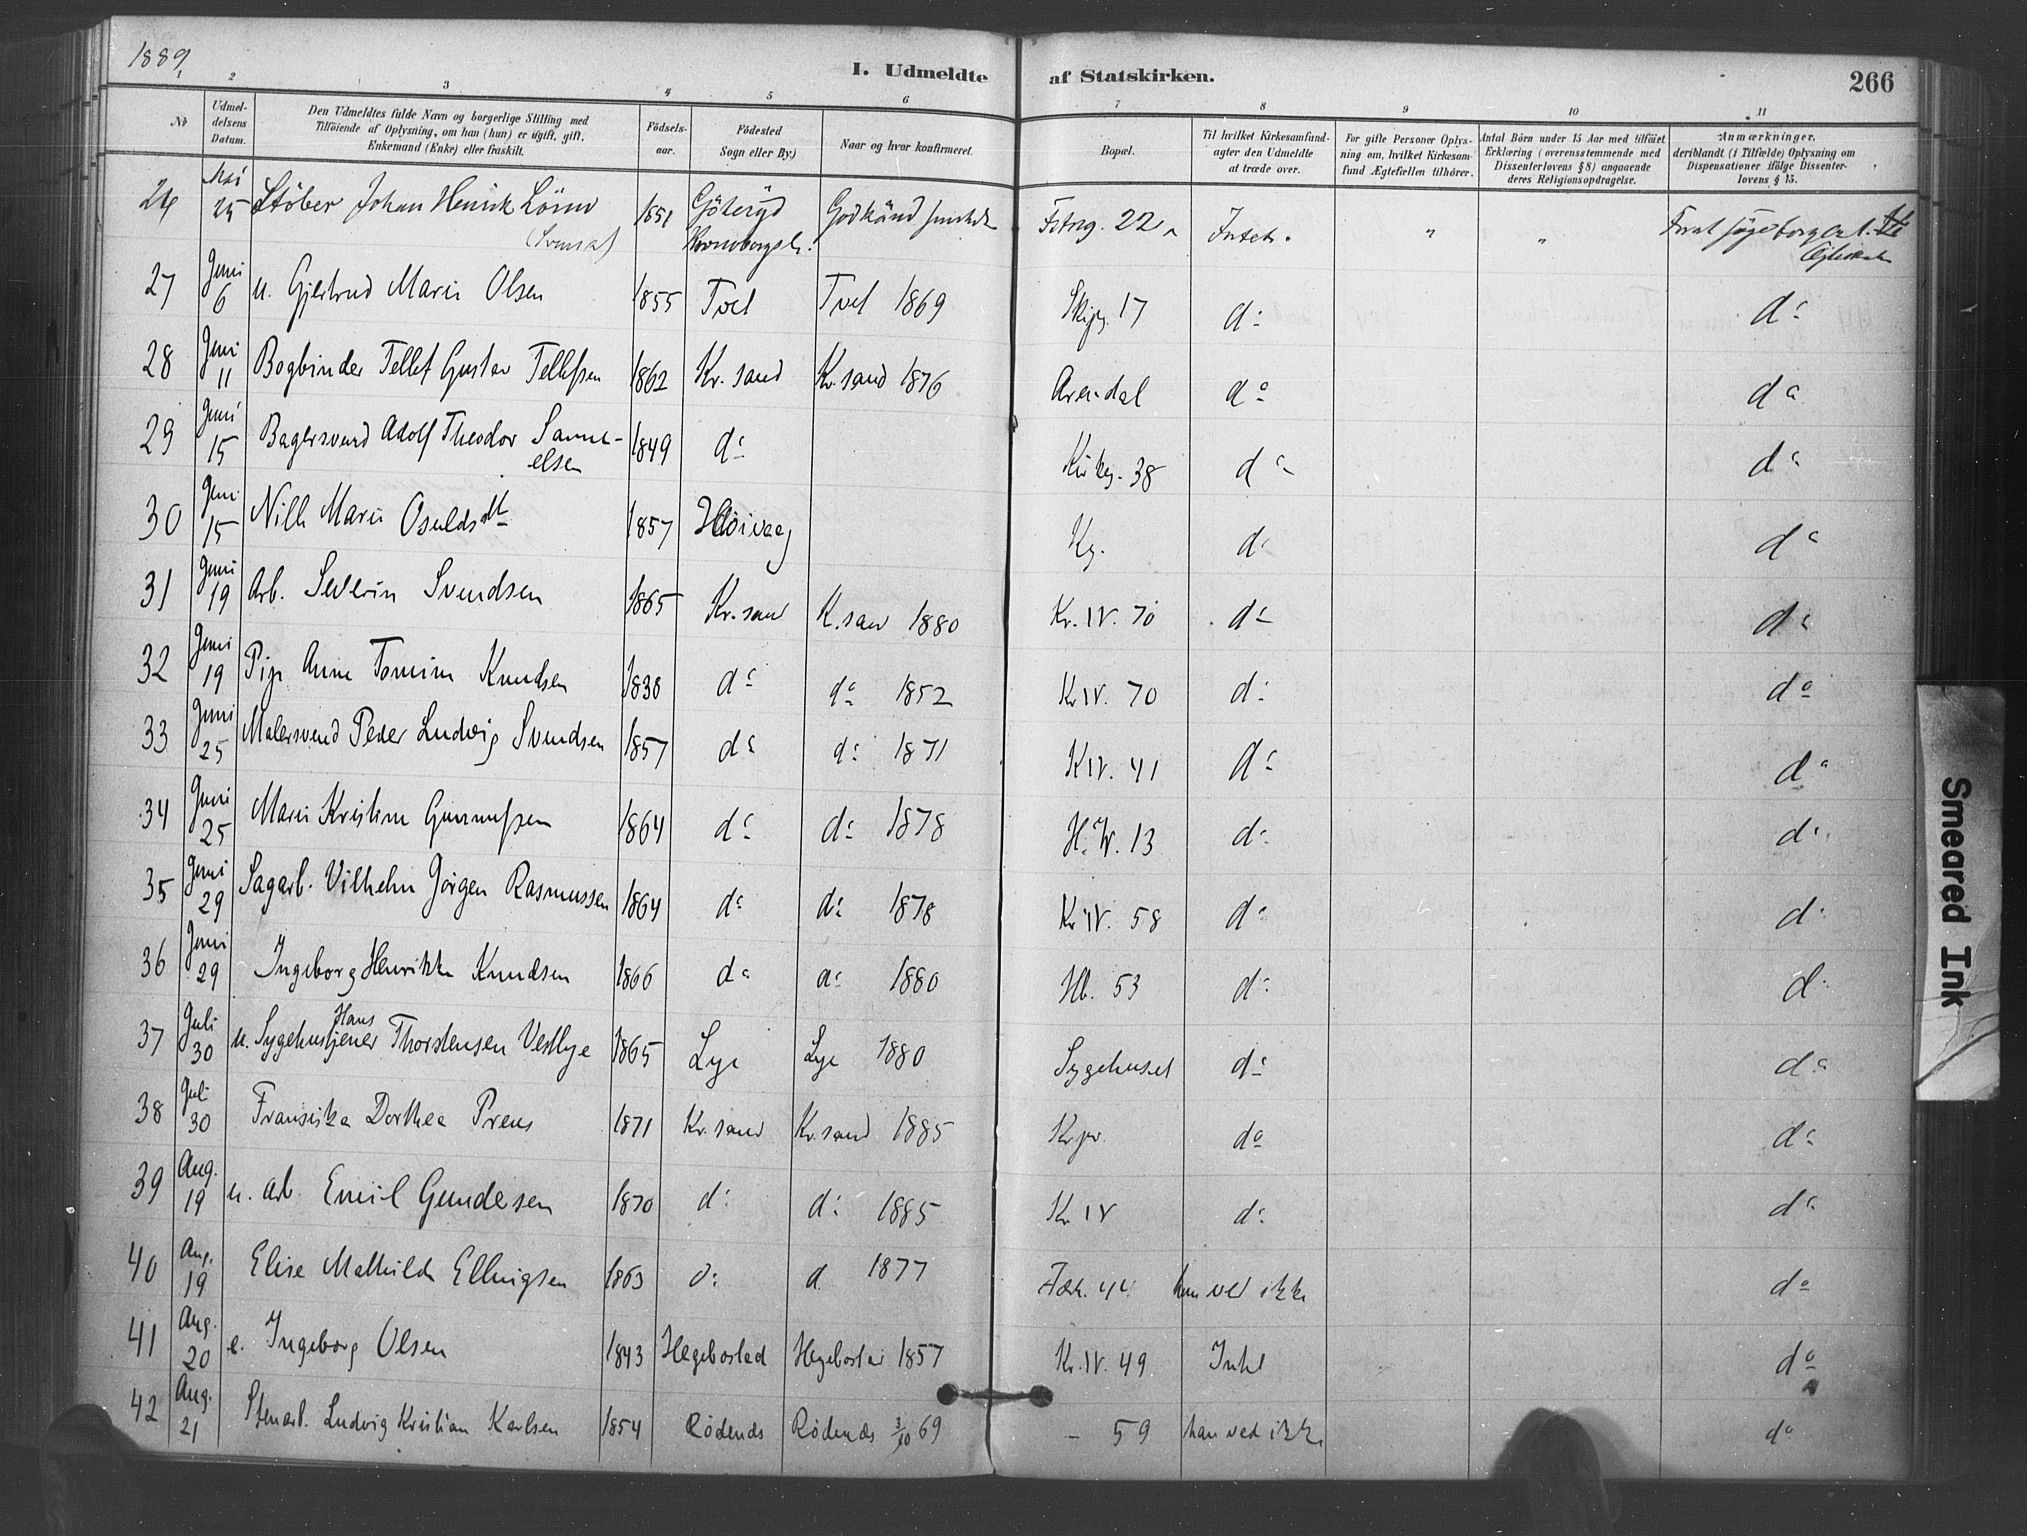 1889
I. Udmeldte af Statskirken. 266
1 2 3 4 5 6 7 8 9 10 11
No
Udmeldelsens Datum.
Den Udmeldtes fulde Navn og borgerlige Stilling med Tilføiende af Oplysning, om han (hun) er ugift, gift, Enkemand (Enke) eller fraskilt.
Fødselsaar.
Fødested Sogn eller By.)
Naar og hvor konfirmeret.
Bopæl.
Til hvilket Kirkesamfund agter den Udmeldte at træde over.
For gifte Personer Oplysning om, hvilket Kirkesamfund Ægtefællen tilhører.
Antal Børn under 15 Aar med tilføiet Erklæring (overensstemmende med Dissenterlovens § 8) angaaende deres Religionsopdragelse.
Anmærkninger, deriblandt (i Tilfælde) Oplysning om Dispensationer ifølge Dissenterlovens § 15.
26 Mai 25 Støber Johan Henrik 1851 22 Intet. " "
27 Juni 6 u. Gjertrud Marie Olsen 1855 Tvet Tvet 1869 Skipg. 17 do do
28 Juni 11 Bogbinder Tellef Gustav Tellefsen 1862 Kr.sand Kr.sand 1876 Arendal do do
29 Juni 15 Bagersvend Adolf Theodor Samuelsen 1849 do Kirkeg. 38 do do
30 Juni 15 Marie 1857 Høivaag Kg. do do
31 Juni 19 Arb. Severin Svendsen 1865 Kr.sand K.sand 1880 Kr. IV. 70 do do
32 Juni 19 Pige Anne Knudsen 1838 do do 1852 Kr IV. 70 do do
33 Juni 25 Malersvend Peder Ludvig Svendsen 1857 do do 1871 K IV. 41 do do
34 Juni 25 Marie Kristine 1864 do do 1878 13 do do
35 Juni 29 Sagarb. Vilhelm Jörgen Rasmussen 1864 do do 1878 Kr IV. 58 do do
36 Juni 29 Ingeborg Henrikke Knudsen 1866 do do 1880 Hb. 53 do do
37 Juli 30 u. Sygehustjener Hans Thorstensen Vestlye 1865 Lye Lye 1880 Sygehuset do do
38 Juli 30 Fransiska Dorthea Preus 1871 Kr.sand Kr.sand 1885 do do
39 Aug. 19 u. Arb. Emil Gundersen 1870 do do 1885 Kr IV do do
40 Aug. 19 Elise Mathilde Ellingsen 1863 do do 1877 44 hun ved ikke do
41 Aug. 20 e. Ingeborg Olsen 1843 Hegebostad Hegebostad 1857 Kr. IV. 49 Intet do
42 Aug. 21 Stenarb. Ludvig Kristian Karlsen 1854 Rødenæs Rødenæs 3/10 69 - 59 han ved ikke do
Smeared Ink